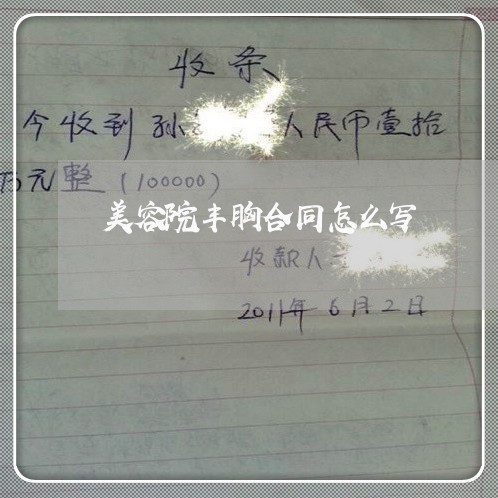 收条
今收到孙 人民币壹拾
万元整(100000)
美容院丰胸合同怎么写
收款人
2011年6月2日